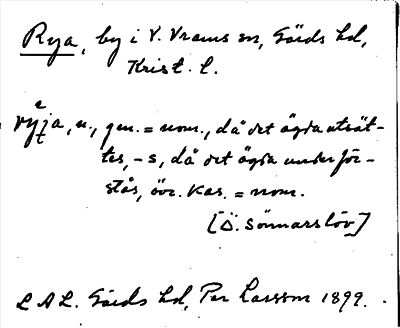 Rya, by i V. Vrams sn, Gärds hd,
Krist. l.
ryt̯a, n., gen. = nom., då det ägda utsät-
tes, -s, då det ägda underför-
stås, övr. kas. = nom.
[Ö. Sönnarslöv]
LAL. Gärds hd, Per Larsson 1899.